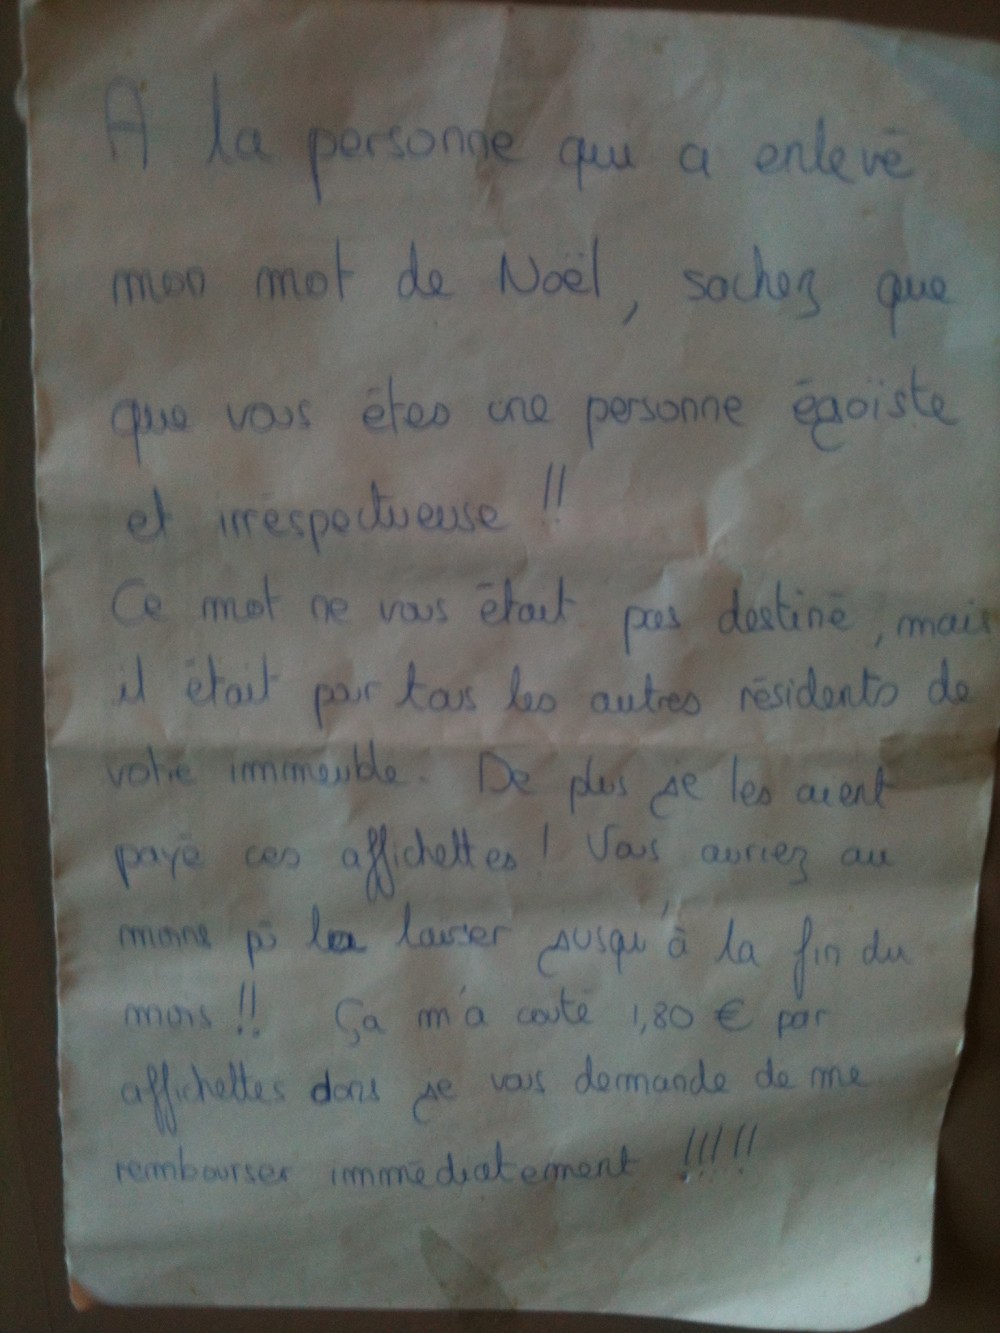 A la personne qui a enlevé
mon mot de Noël, sachez que
que vous êtes une personne égoïste
et irrespectueuse !!
Ce mot ne vous était pas destiné, mais
il était par tous les autres résidents de
votre immeuble. De plus je les aient
payé ces affichettes ! Vous auriez au
moins pû laisser jusqu'à la fin du
mois !! Ça m'a couté 1,80 € par
affichettes donc je vous demande de me
rembourser immédiatement !!!!!